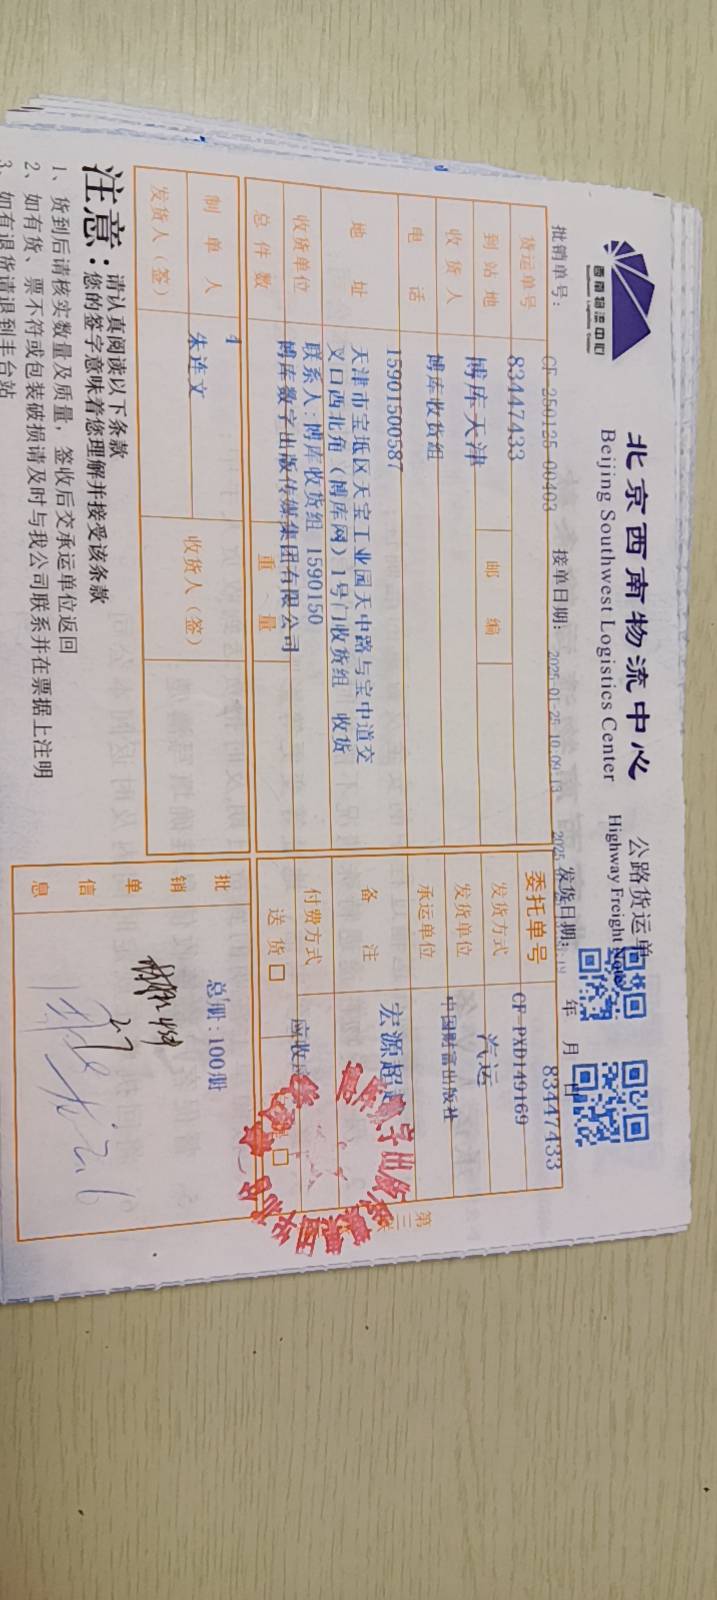 西南物流中心
北京西南物流中心 公路货运单
Beijing Southwest Logistics Center Highway Freight Note
批销单号: CF-250125-00403 接单日期: 2025-01-25 10:09:13 发货日期: 2025 年 月 日
货运单号 83447433 委托单号 83447433
CF-PXD149169
到站地 博库天津 邮编 发货方式 汽运
收货人 博库收货组 发货单位 中国财富出版社
电话 15901500587 承运单位 宏源超
地址 天津市宝坻区天宝工业园天中路与宝中道交
叉口西北角（博库网）1号门收货组 收货
联系人:博库收货组 1590150
备注
收货单位 博库数字出版传媒集团有限公司 付费方式 应收
总件数 4 重量 送货□ □
制单人 朱连文 收货人（签）
发货人（签）
批销单信息 总册:100册
第三联
注意:
请认真阅读以下条款
您的签字意味着您理解并接受该条款
1、货到后请核实数量及质量，签收后交承运单位返回
2、如有货、票不符或包装破损请及时与我公司联系并在票据上注明
3、如有退货请退到丰台站